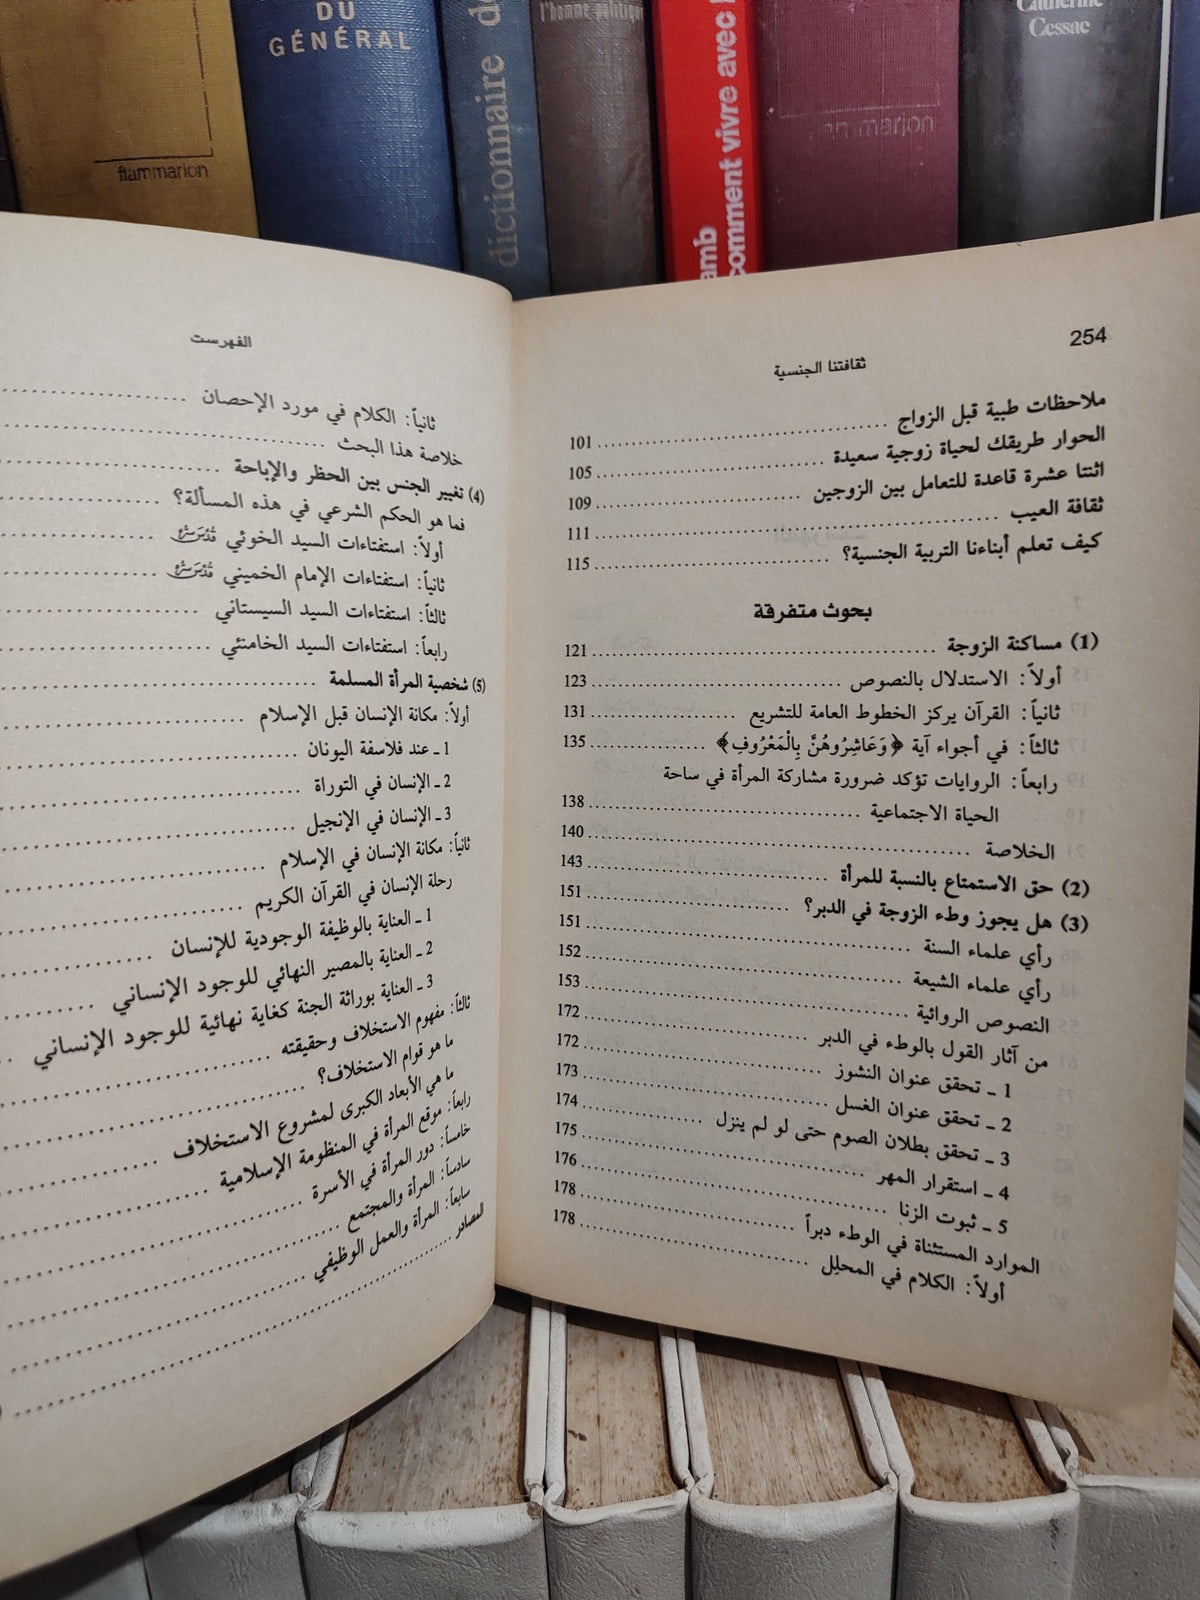 DU
GÉNÉRAL
flammarion
dictionnaire de
l'homme politique
comment vivre avec
amb
Catherine
Cessac
254
ثقافتنا الجنسية
ملاحظات طبية قبل الزواج ........ 101
الحوار طريقك لحياة زوجية سعيدة ........ 105
اثنتا عشرة قاعدة للتعامل بين الزوجين ........ 109
ثقافة العيب ........ 111
كيف تعلم أبناءنا التربية الجنسية؟ ........ 115
بحوث متفرقة
(1) مساكنة الزوجة ........ 121
أولاً: الاستدلال بالنصوص ........ 123
ثانياً: القرآن يركز الخطوط العامة للتشريع ........ 131
ثالثاً: في أجواء آية ﴿وَعَاشِرُوهُنَّ بِالْمَعْرُوفِ﴾ ........ 135
رابعاً: الروايات تؤكد ضرورة مشاركة المرأة في ساحة
الحياة الاجتماعية ........ 138
الخلاصة ........ 140
(2) حق الاستمتاع بالنسبة للمرأة ........ 143
(3) هل يجوز وطء الزوجة في الدبر؟ ........ 151
رأي علماء السنة ........ 151
رأي علماء الشيعة ........ 152
النصوص الروائية ........ 153
من آثار القول بالوطء في الدبر ........ 172
1 ـ تحقق عنوان النشوز ........ 172
2 ـ تحقق عنوان الغسل ........ 173
3 ـ تحقق بطلان الصوم حتى لو لم ينزل ........ 174
4 ـ استقرار المهر ........ 175
5 ـ ثبوت الزنا ........ 176
الموارد المستثناة في الوطء دبراً ........ 178
أولاً: الكلام في المحلِل ........ 178
الفهرست
ثانياً: الكلام في مورد الإحصان ........
خلاصة هذا البحث ........
(4) تغيير الجنس بين الحظر والإباحة ........
فما هو الحكم الشرعي في هذه المسألة؟ ........
أولاً: استفتاءات السيد الخوئي قُدِّسَ سِرُّه ........
ثانياً: استفتاءات الإمام الخميني قُدِّسَ سِرُّه ........
ثالثاً: استفتاءات السيد السيستاني ........
رابعاً: استفتاءات السيد الخامنئي ........
(5) شخصية المرأة المسلمة ........
أولاً: مكانة الإنسان قبل الإسلام ........
1 ـ عند فلاسفة اليونان ........
2 ـ الإنسان في التوراة ........
3 ـ الإنسان في الإنجيل ........
ثانياً: مكانة الإنسان في الإسلام ........
رحلة الإنسان في القرآن الكريم ........
1 ـ العناية بالوظيفة الوجودية للإنسان ........
2 ـ العناية بالمصير النهائي للوجود الإنساني ........
3 ـ العناية بوراثة الجنة كغاية نهائية للوجود الإنساني ........
ثالثاً: مفهوم الاستخلاف وحقيقته ........
ما هو قوام الاستخلاف؟ ........
ما هي الأبعاد الكبرى لمشروع الاستخلاف ........
رابعاً: موقع المرأة في المنظومة الإسلامية ........
خامساً: دور المرأة في الأسرة ........
سادساً: المرأة والمجتمع ........
سابعاً: المرأة والعمل الوظيفي ........
المصادر ........